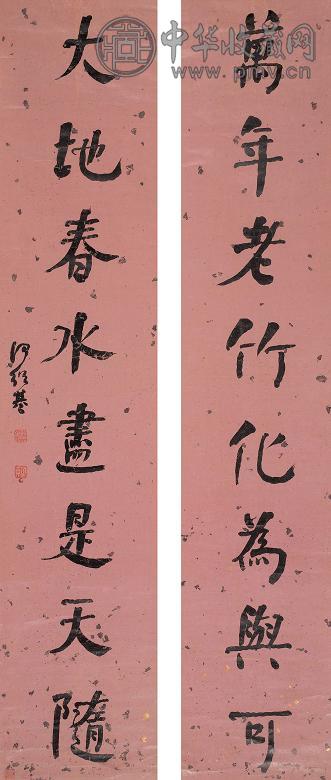 萬年老竹化為與可
大地春水盡是天隨
何紹基
中华收藏网
www.pjnv.cn